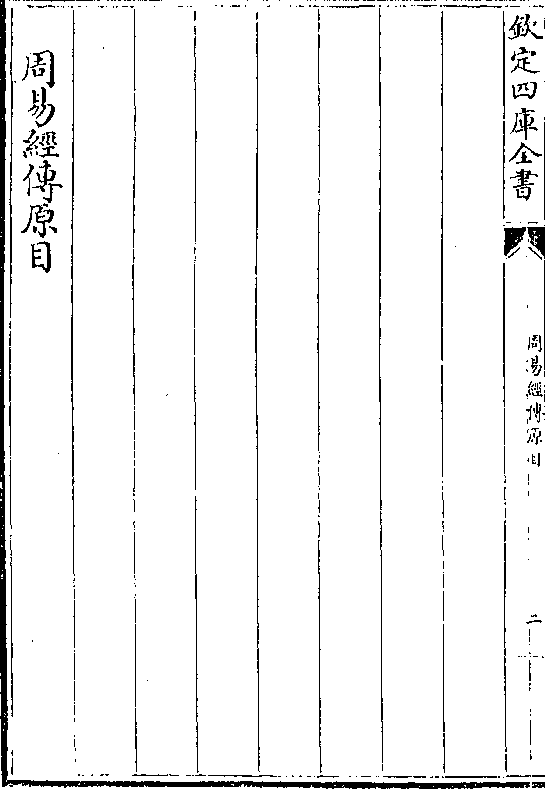 欽定四庫全書
周易經傳原目
二
周易經傳原目